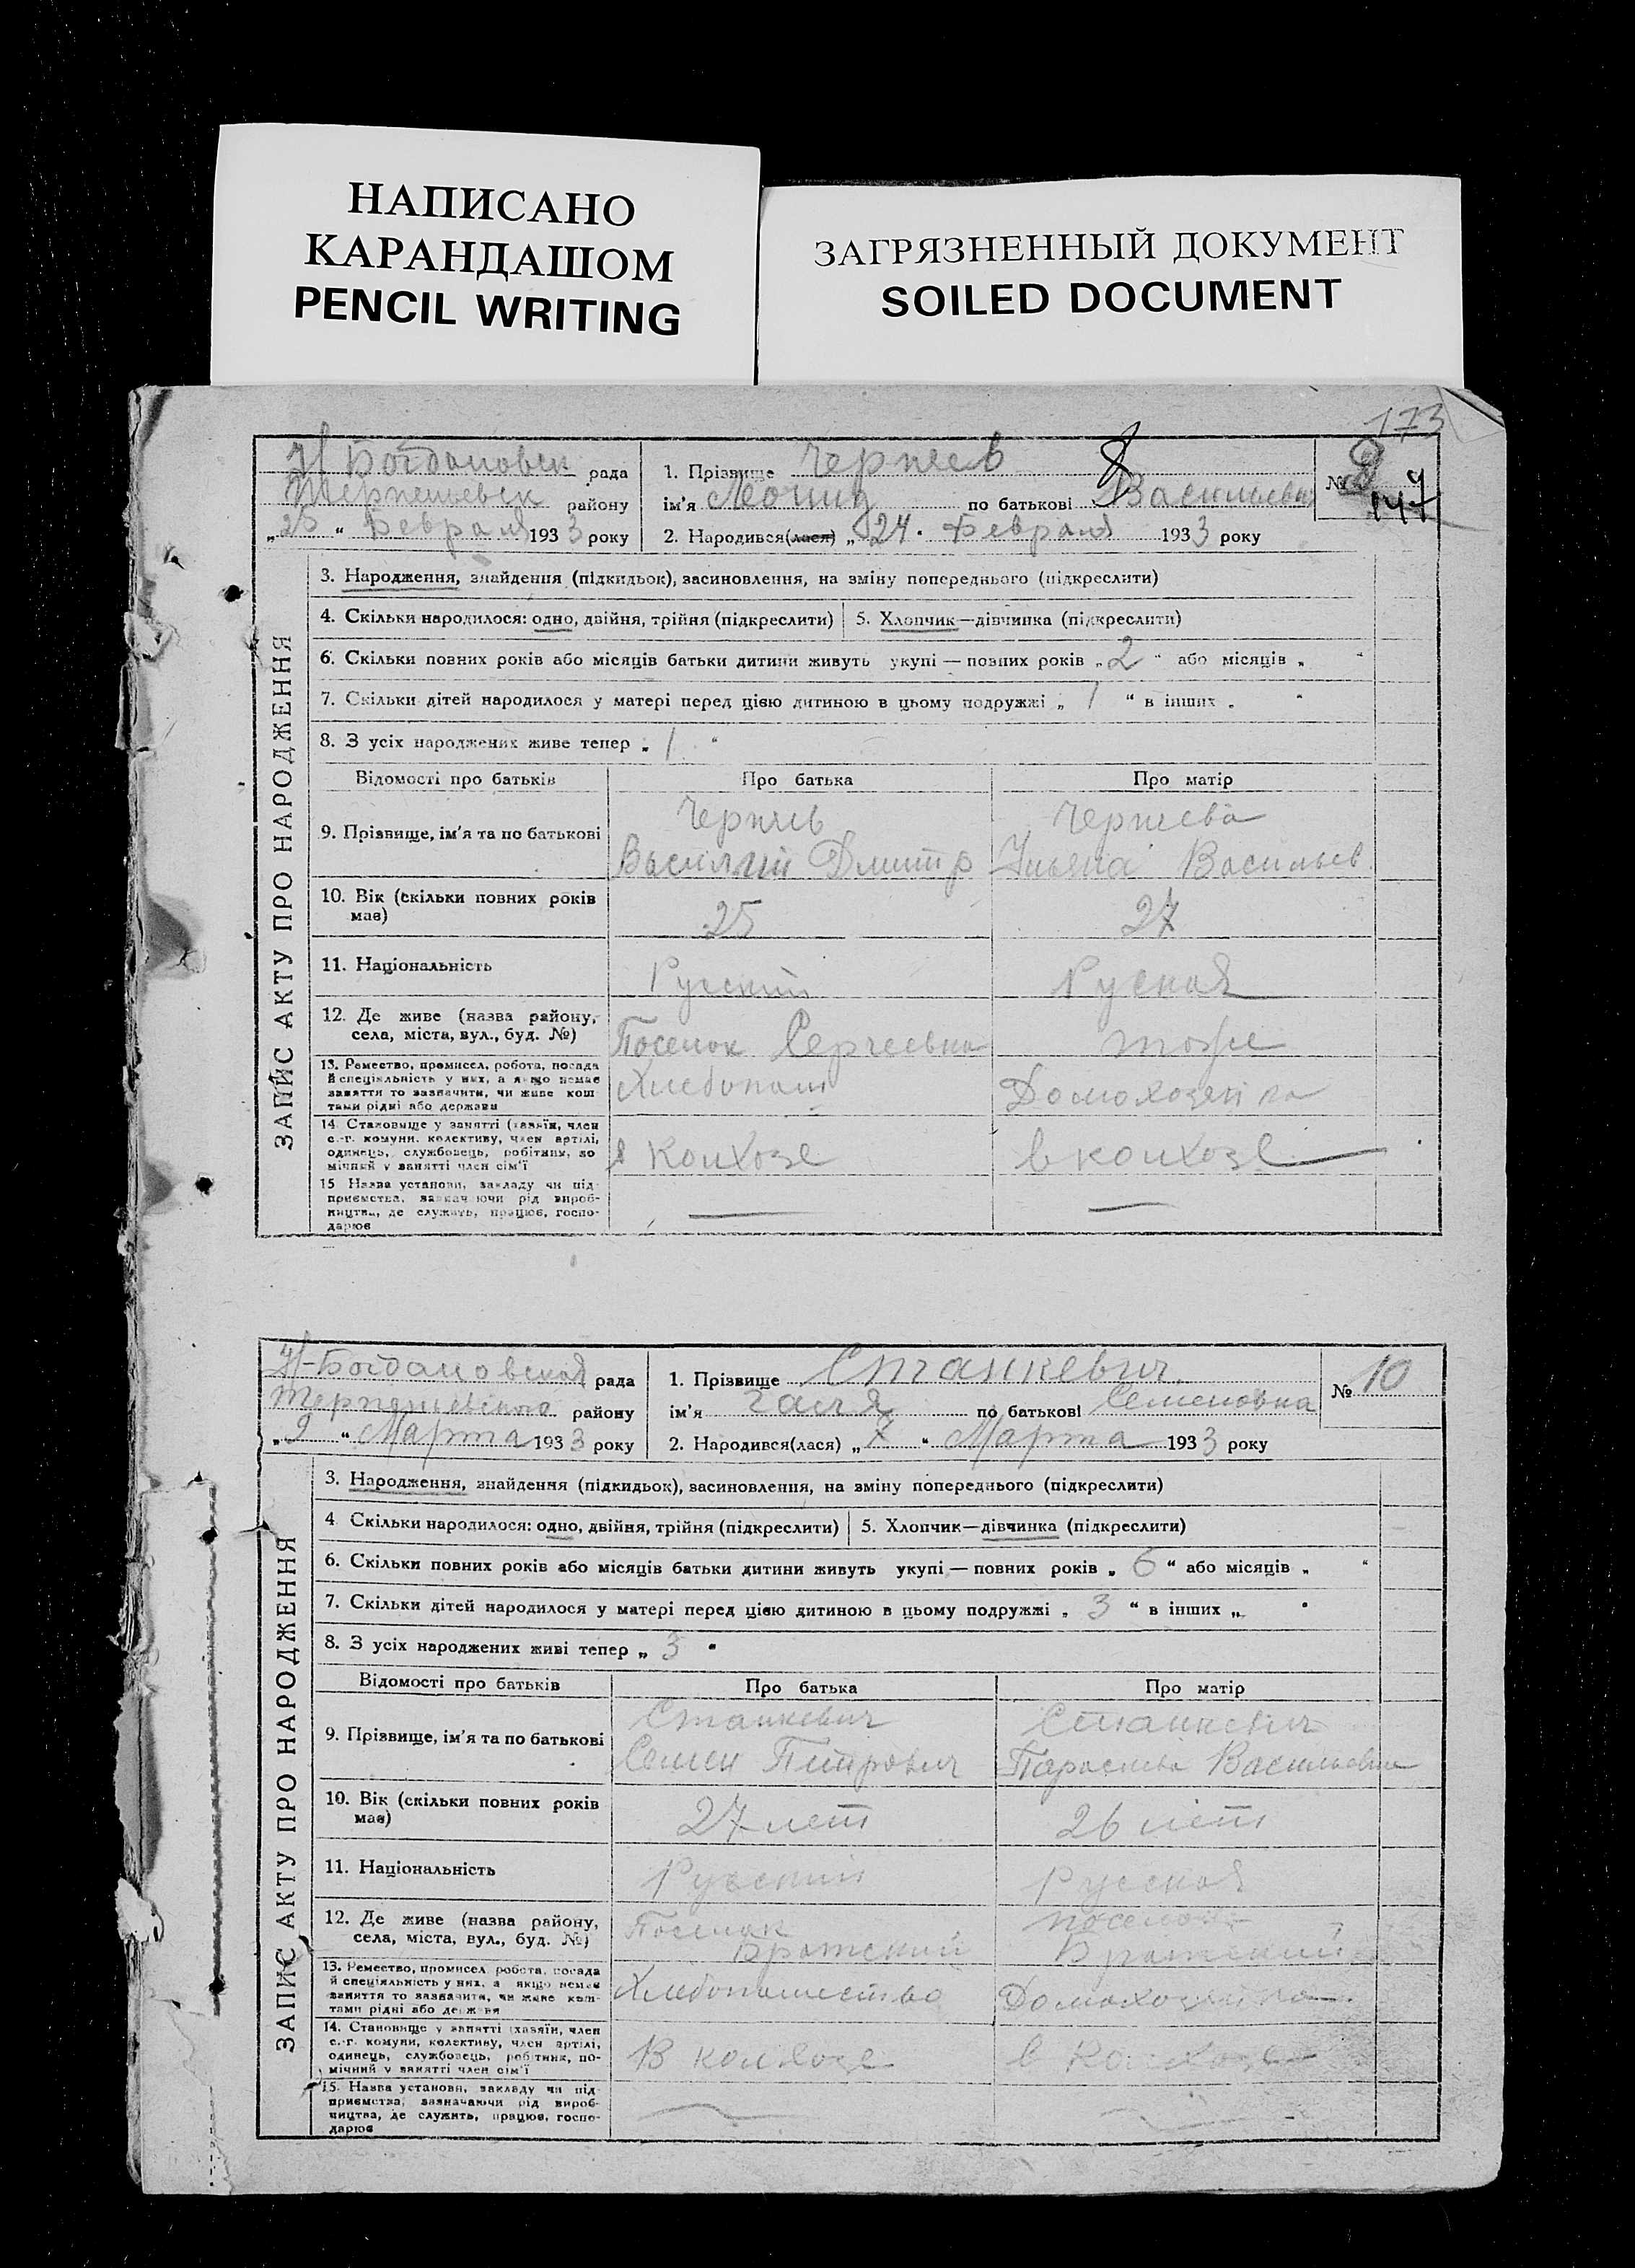 НАПИСАНО
КАРАНДАШОМ
PENCIL WRITING
ЗАГРЯЗНЕННЫЙ ДОКУМЕНТ
SOILED DOCUMENT
173
ЗАПИС АКТУ ПРО НАРОДЖЕННЯ
Н Богдановск рада
района
„25“ Февраля 1933 року
1. Прізвище
ім'я Леонид по батькові Васильевич
2. Народився(лася) „24“ Февраля 1933 року
№ 9
147
3. Народження, знайдення (підкидьок), засиновлення, на зміну попереднього (підкреслити)
4. Скільки народилося: одно, двійня, трійня (підкреслити) 5. Хлопчик—дівчинка (підкреслити)
6. Скільки повних років або місяців батьки дитини живуть укупі — повних років „2“ або місяців „ “
7. Скільки дітей народилося у матері перед цією дитиною в цьому подружжі „1“ в інших „ “
8. З усіх народжених живе тепер „1“
Відомості про батьків Про батька Про матір
9. Прізвище, ім'я та по батькові
Василий Дмитр Ульяна Васильев
10. Вік (скільки повних років має) 25 27
11. Національність Русский Руская
12. Де живе (назва району, села, міста, вул., буд. №) Поселок тоже
13. Ремество, промисел, робота, посада й спеціяльність у них, а якщо немає заняття то зазначити, чи живе коштами рідні або держави Хлебопаш Домохозяйка
14. Становище у занятті (хазяїн, член с.-г. комуни, колективу, член артілі, одинець, службовець, робітник, помічний у занятті член сім'ї в колхозе в колхозе
15. Назва установи, закладу чи підприємства, зазначаючи рід виробництва, де служить, працює, господарює
ЗАПИС АКТУ ПРО НАРОДЖЕННЯ
Н-Богдановская рада
району
„9“ Марта 1933 року
1. Прізвище Станкевич
ім'я Галя по батькові Семеновна
2. Народився(лася) Марта 1933 року
№ 10
3. Народження, знайдення (підкидьок), засиновлення, на зміну попереднього (підкреслити)
4. Скільки народилося: одно, двійня, трійня (підкреслити) 5. Хлопчик—дівчинка (підкреслити)
6. Скільки повних років або місяців батьки дитини живуть укупі — повних років „6“ або місяців „ “
7. Скільки дітей народилося у матері перед цією дитиною в цьому подружжі „3“ в інших „ “
8. З усіх народжених живі тепер „3“
Відомості про батьків Про батька Про матір
9. Прізвище, ім'я та по батькові Станкевич Станкевич
Семен Питрович Параскева Васильевна
10. Вік (скільки повних років має) 27 лет 26 лет
11. Національність Русский Русская
12. Де живе (назва району, села, міста, вул., буд. №) Поселок Братский поселок Братский
13. Ремество, промисел, робота, посада й спеціяльність у них, а якщо немає заняття то зазначити, чи живе коштами рідні або держави Хлебопашество Домохозяйка
14. Становище у занятті (хазяїн, член с.-г. комуни, колективу, член артілі, одинець, службовець, робітник, помічний у занятті член сім'ї В колхозе в колхозе
15. Назва установи, закладу чи підприємства, зазначаючи рід виробництва, де служить, працює, господарює